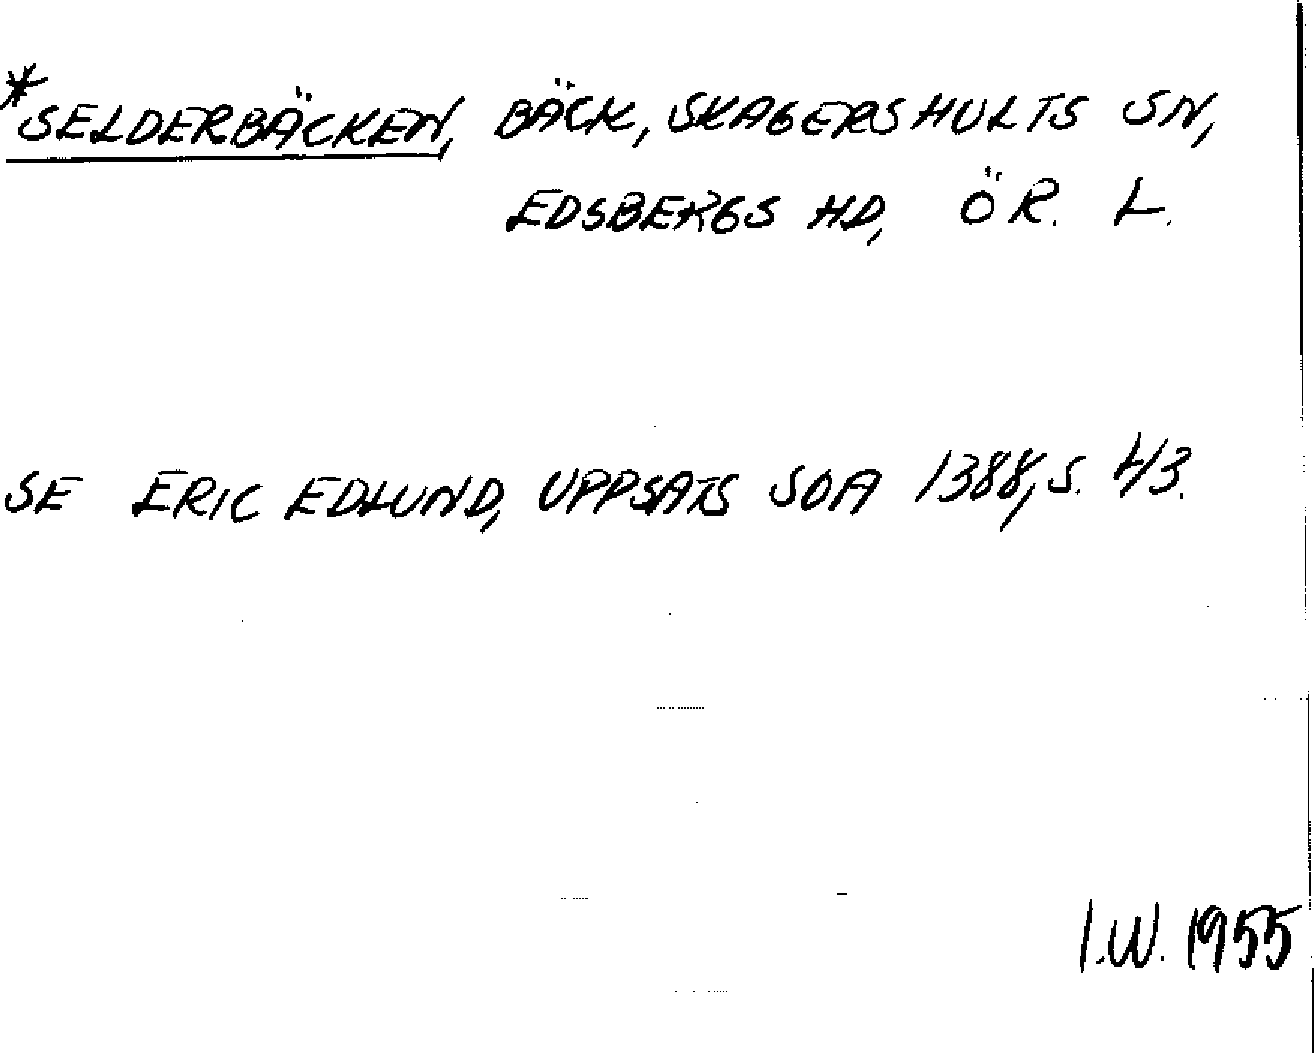 *SELDERBÄCKEN, BÄCK, SKAGERSHULTS SN,
EDSBERGS HD, ÖR. L.
SE ERIC EDLUND, UPPSATS SOA 1388, S. 43.
I.W. 1955